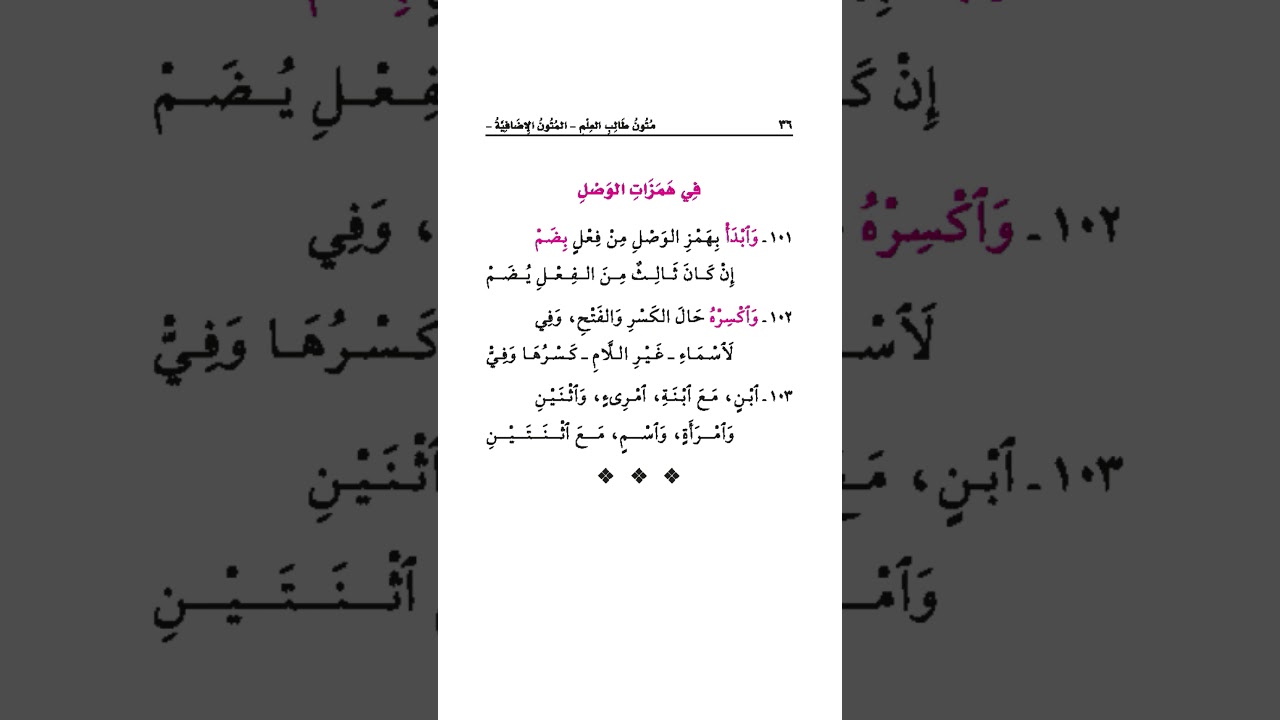 ٣٦ مُتُونُ طَالِبِ العِلْمِ - المُتُونُ الإِضَافِيَّةُ -
فِي هَمَزَاتِ الوَصْلِ
١٠١ - وَٱبْدَأْ بِهَمْزِ الوَصْلِ مِنْ فِعْلٍ بِضَمْ
إِنْ كَانَ ثَالِثٌ مِنَ الفِعْلِ يُضَمْ
١٠٢ - وَٱكْسِرْهُ حَالَ الكَسْرِ وَالفَتْحِ، وَفِي
لَٱسْمَاءِ - غَيْرِ اللَّامِ - كَسْرُهَا وَفِيْ
١٠٣ - ٱبْنٍ، مَعَ ٱبْنَةِ، ٱمْرِىءٍ، وَٱثْنَيْنِ
وَٱمْرَأَةٍ، وَٱسْمٍ، مَعَ ٱثْنَتَيْنِ